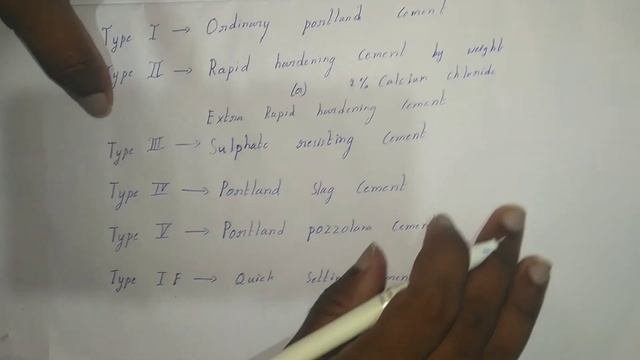 Type I → Ordinary portland cement
Type II → Rapid hardening cement by weight
(or) 2% Calcium chloride
Extra Rapid hardening cement
Type III → Sulphate resisting cement
Type IV → Portland slag cement
Type V → Portland pozzolana cement
Type I F → Quick